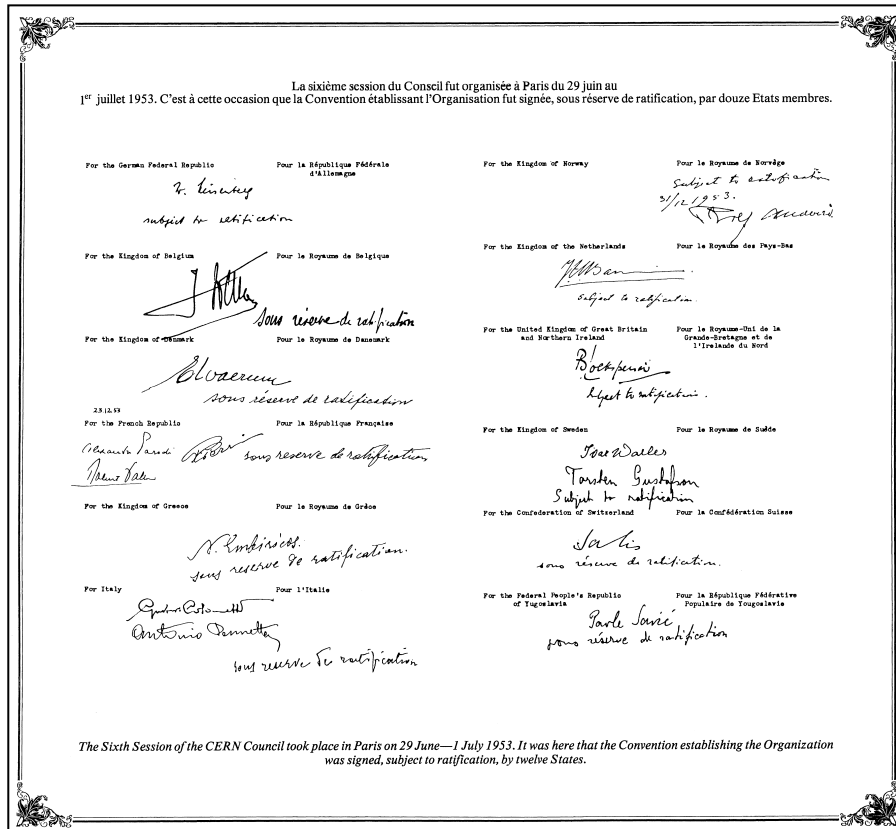 La sixième session du Conseil fut organisée à Paris du 29 juin au
1er juillet 1953. C'est à cette occasion que la Convention établissant l'Organisation fut signée, sous réserve de ratification, par douze Etats membres.
For the German Federal Republic
Pour la République Fédérale
d'Allemagne
subject to ratification
For the Kingdom of Belgium
Pour le Royaume de Belgique
sous réserve de ratification
For the Kingdom of Denmark
Pour le Royaume de Danemark
sous réserve de ratification
23.12.53
For the French Republic
Pour la République Française
Alexandre Parodi
sous reserve de ratification
For the Kingdom of Greece
Pour le Royaume de Grèce
N. Embiricos.
sous reserve de ratification.
For Italy
Pour l'Italie
Antonio Pennetta
sous reserve de ratification
For the Kingdom of Norway
Pour le Royaume de Norvège
subject to ratification
31/12 1953.
For the Kingdom of the Netherlands
Pour le Royaume des Pays-Bas
subject to ratification.
For the United Kingdom of Great Britain
and Northern Ireland
Pour le Royaume-Uni de la
Grande-Bretagne et de
l'Irelande du Nord
subject to ratification.
For the Kingdom of Sweden
Pour le Royaume de Suède
Ivar Waller
Torsten Gustafson
Subject to ratification
For the Confederation of Switzerland
Pour la Confédération Suisse
Salis
sous réserve de ratification.
For the Federal People's Republic
of Yugoslavia
Pour la République Fédérative
Populaire de Yougoslavie
Pavle Savić
sous réserve de ratification
The Sixth Session of the CERN Council took place in Paris on 29 June—1 July 1953. It was here that the Convention establishing the Organization
was signed, subject to ratification, by twelve States.